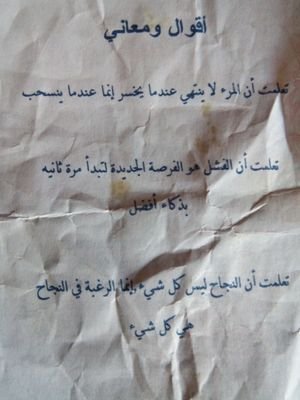 أقوال ومعاني
تعلمت أن المرء لا ينتهي عندما يخسر إنما عندما ينسحب
تعلمت أن الفشل هو الفرصة الجديدة لتبدأ مرة ثانيه
بذكاء أفضل
تعلمت أن النجاح ليس كل شيء إنما الرغبة في النجاح
هي كل شيء